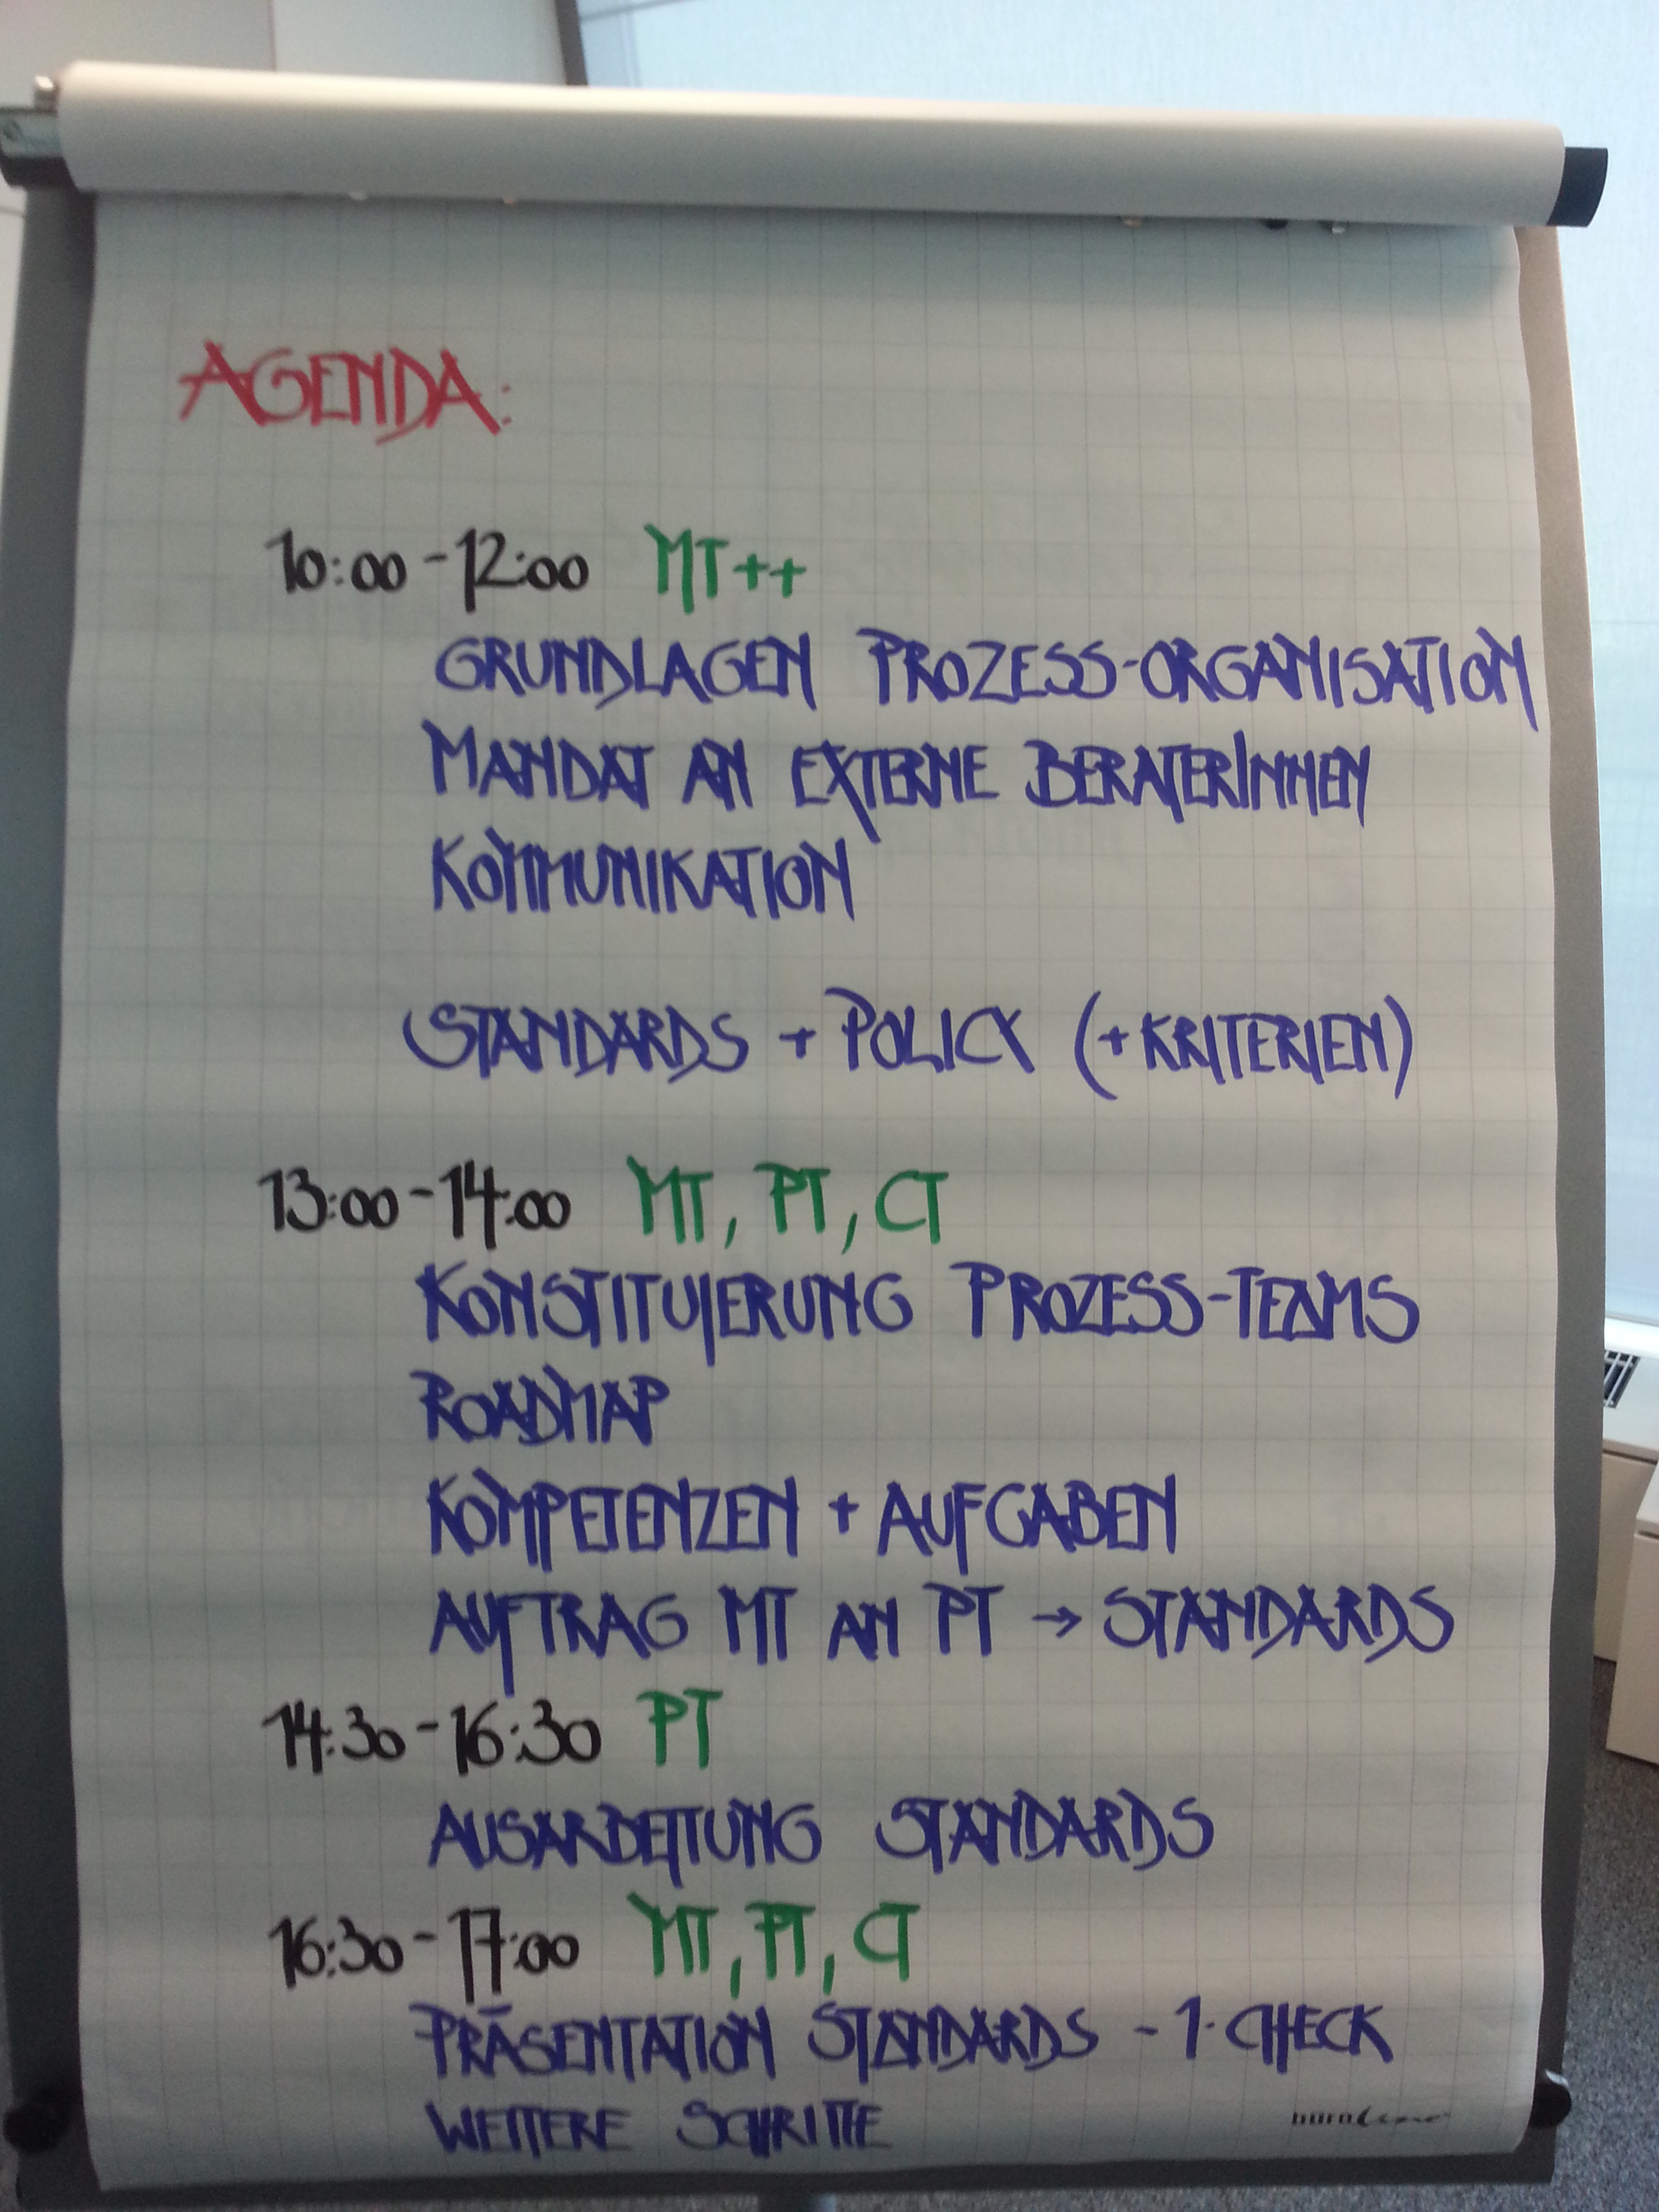 AGENDA:
10:00 - 12:00 MT++
GRUNDLAGEN PROZESS-ORGANISATION
MANDAT AN EXTERNE BERATERINNEN
KOMMUNIKATION
STANDARDS + POLICY (+ KRITERIEN)
13:00 - 14:00 MT, PT, CT
KONSTITUIERUNG PROZESS-TEAMS
ROADMAP
KOMPETENZEN + AUFGABEN
AUFTRAG MT AN PT → STANDARDS
14:30 - 16:30 PT
AUSARBEITUNG STANDARDS
16:30 - 17:00 MT, PT, CT
PRÄSENTATION STANDARDS - 1. CHECK
WEITERE SCHRITTE
büroline